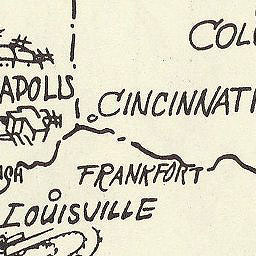 COLU
APOLIS
CINCINNATI
GH
FRANKFORT
LOUISVILLE